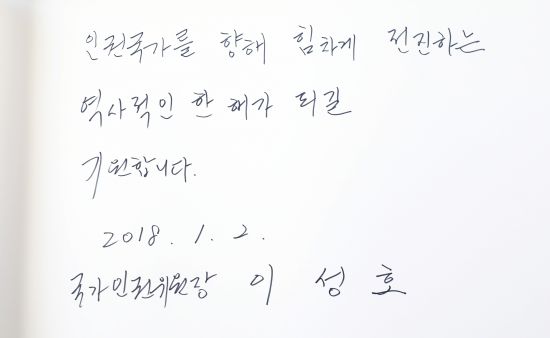 인권국가를 향해 힘차게 전진하는
역사적인 한 해가 되길
기원합니다.
2018. 1. 2.
국가인권위원장 이 성 호